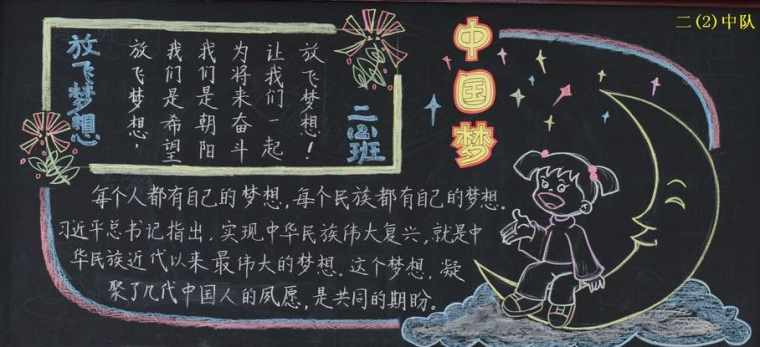 放飞梦想
放飞梦想，
我们是希望
我们是朝阳
为将来奋斗
让我们一起
放飞梦想！
二(2)班
中国梦
二(2)中队
每个人都有自己的梦想，每个民族都有自己的梦想。
习近平总书记指出，实现中华民族伟大复兴，就是中
华民族近代以来最伟大的梦想。这个梦想，凝
聚了几代中国人的夙愿，是共同的期盼。